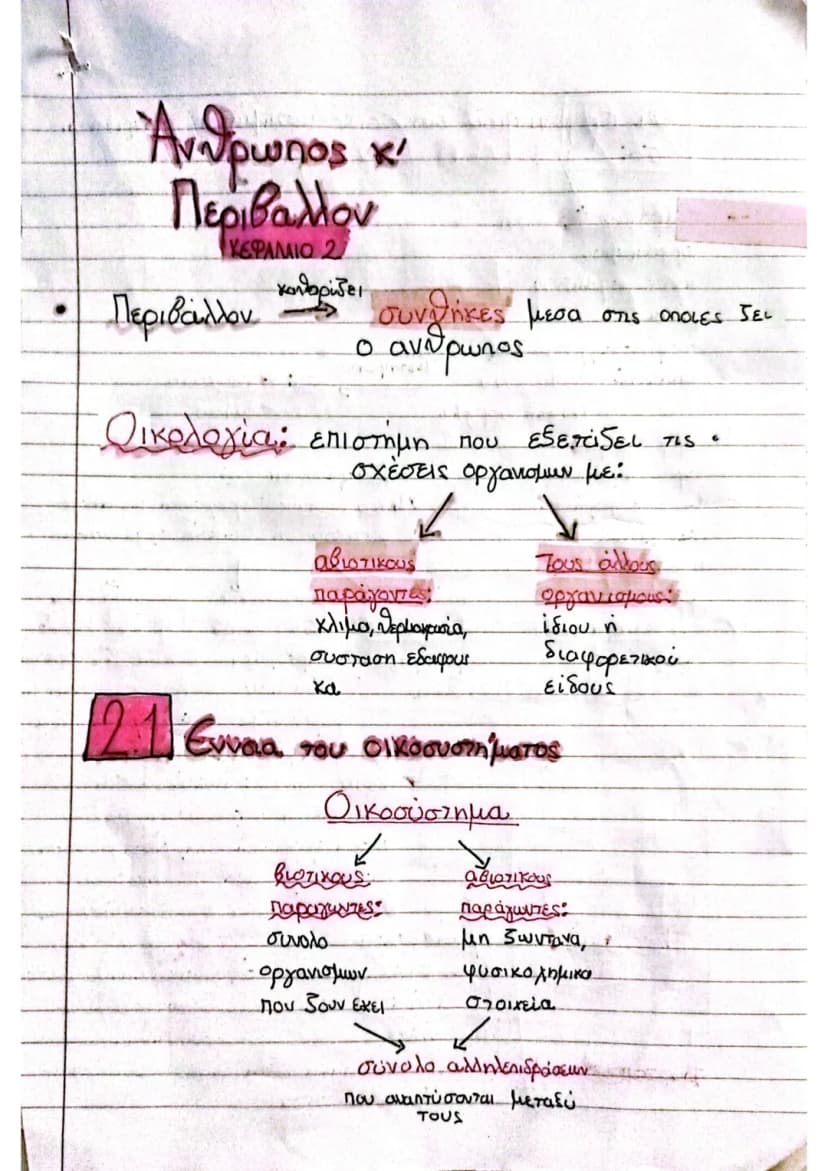 Άνθρωπος κ'
Περιβαλλον
ΚΕΦΑΛΑΙΟ 2
• Περιβάλλον καθορίζει → συνθήκες μεσα στις οποιες ζει
ο ανθρωπος
Οικολογία: επιστήμη που εξετάζει τις
σχέσεις οργανισμων με:
αβιοτικους
παράγοντες:
κλιμα, θερμοκρασία,
συσταση εδαφους
κα
τους άλλους
οργανισμους:
ίδιου ή
διαφορετικού
είδους
2.1 Εννοια του οικοσυστήματος
Οικοσύστημα
βιοτικους
παραγωντες:
συνολο
οργανισμων
που ζουν εκει
αβιοτικους
παράγωντες:
μη ζωντανα,
φυσικοχημικα
στοιχεία
σύνολο αλληλεπιδράσεων
που αναπτύσονται μεταξύ
τους